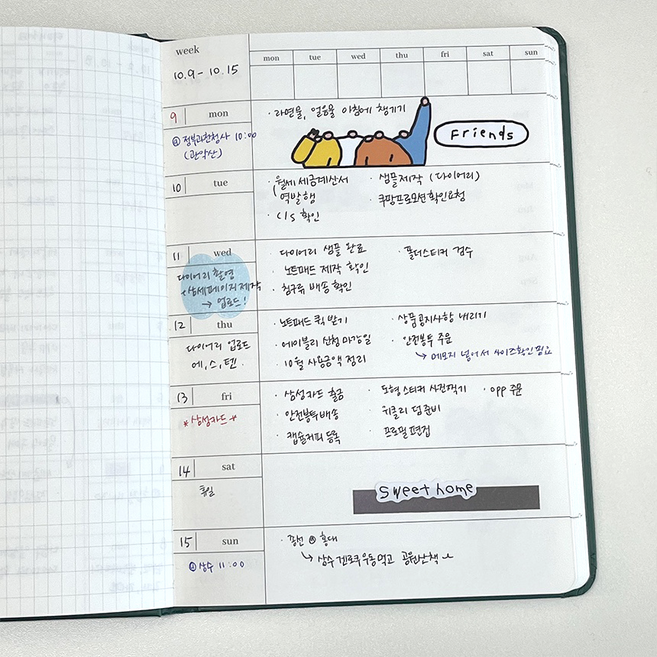 week
10.9 - 10.15
mon tue wed thu fri sat sun
9 mon
정부과천청사 10:00
(관악산)
· 라면물, 얼음물 아침에 챙기기
Friends
10 tue
· 월세 세금계산서
역발행
· C/S 확인
· 샘플제작 (다이어리)
· 쿠팡프로모션확인요청
11 wed
다이어리 촬영
+상세페이지 제작
→ 업로드!
· 다이어리 샘플 완료
· 노트패드 제작 확인
· 침구류 배송 확인
· 폴더스티커 검수
12 thu
다이어리 업로드
에, 스, 텐.
· 노트패드 퀵 받기
· 에이블리 신청 마감일
· 10월 사용금액 정리
· 상품공지사항 내리기
· 안전봉투 주문
↳ 메모지 넣어서 사이즈확인 필요
13 fri
*삼성카드*
· 삼성카드 출금
· 안전봉투배송
· 캡슐커피 등록
· 도형스티커 사진찍기
· 위클리 덤 준비
· 프로필 편집
· opp 주문
14 sat
휴일
sweet home
15 sun
상수 11:00
@ 홍대
↳ 상수 겐로쿠우동 먹고 공원산책